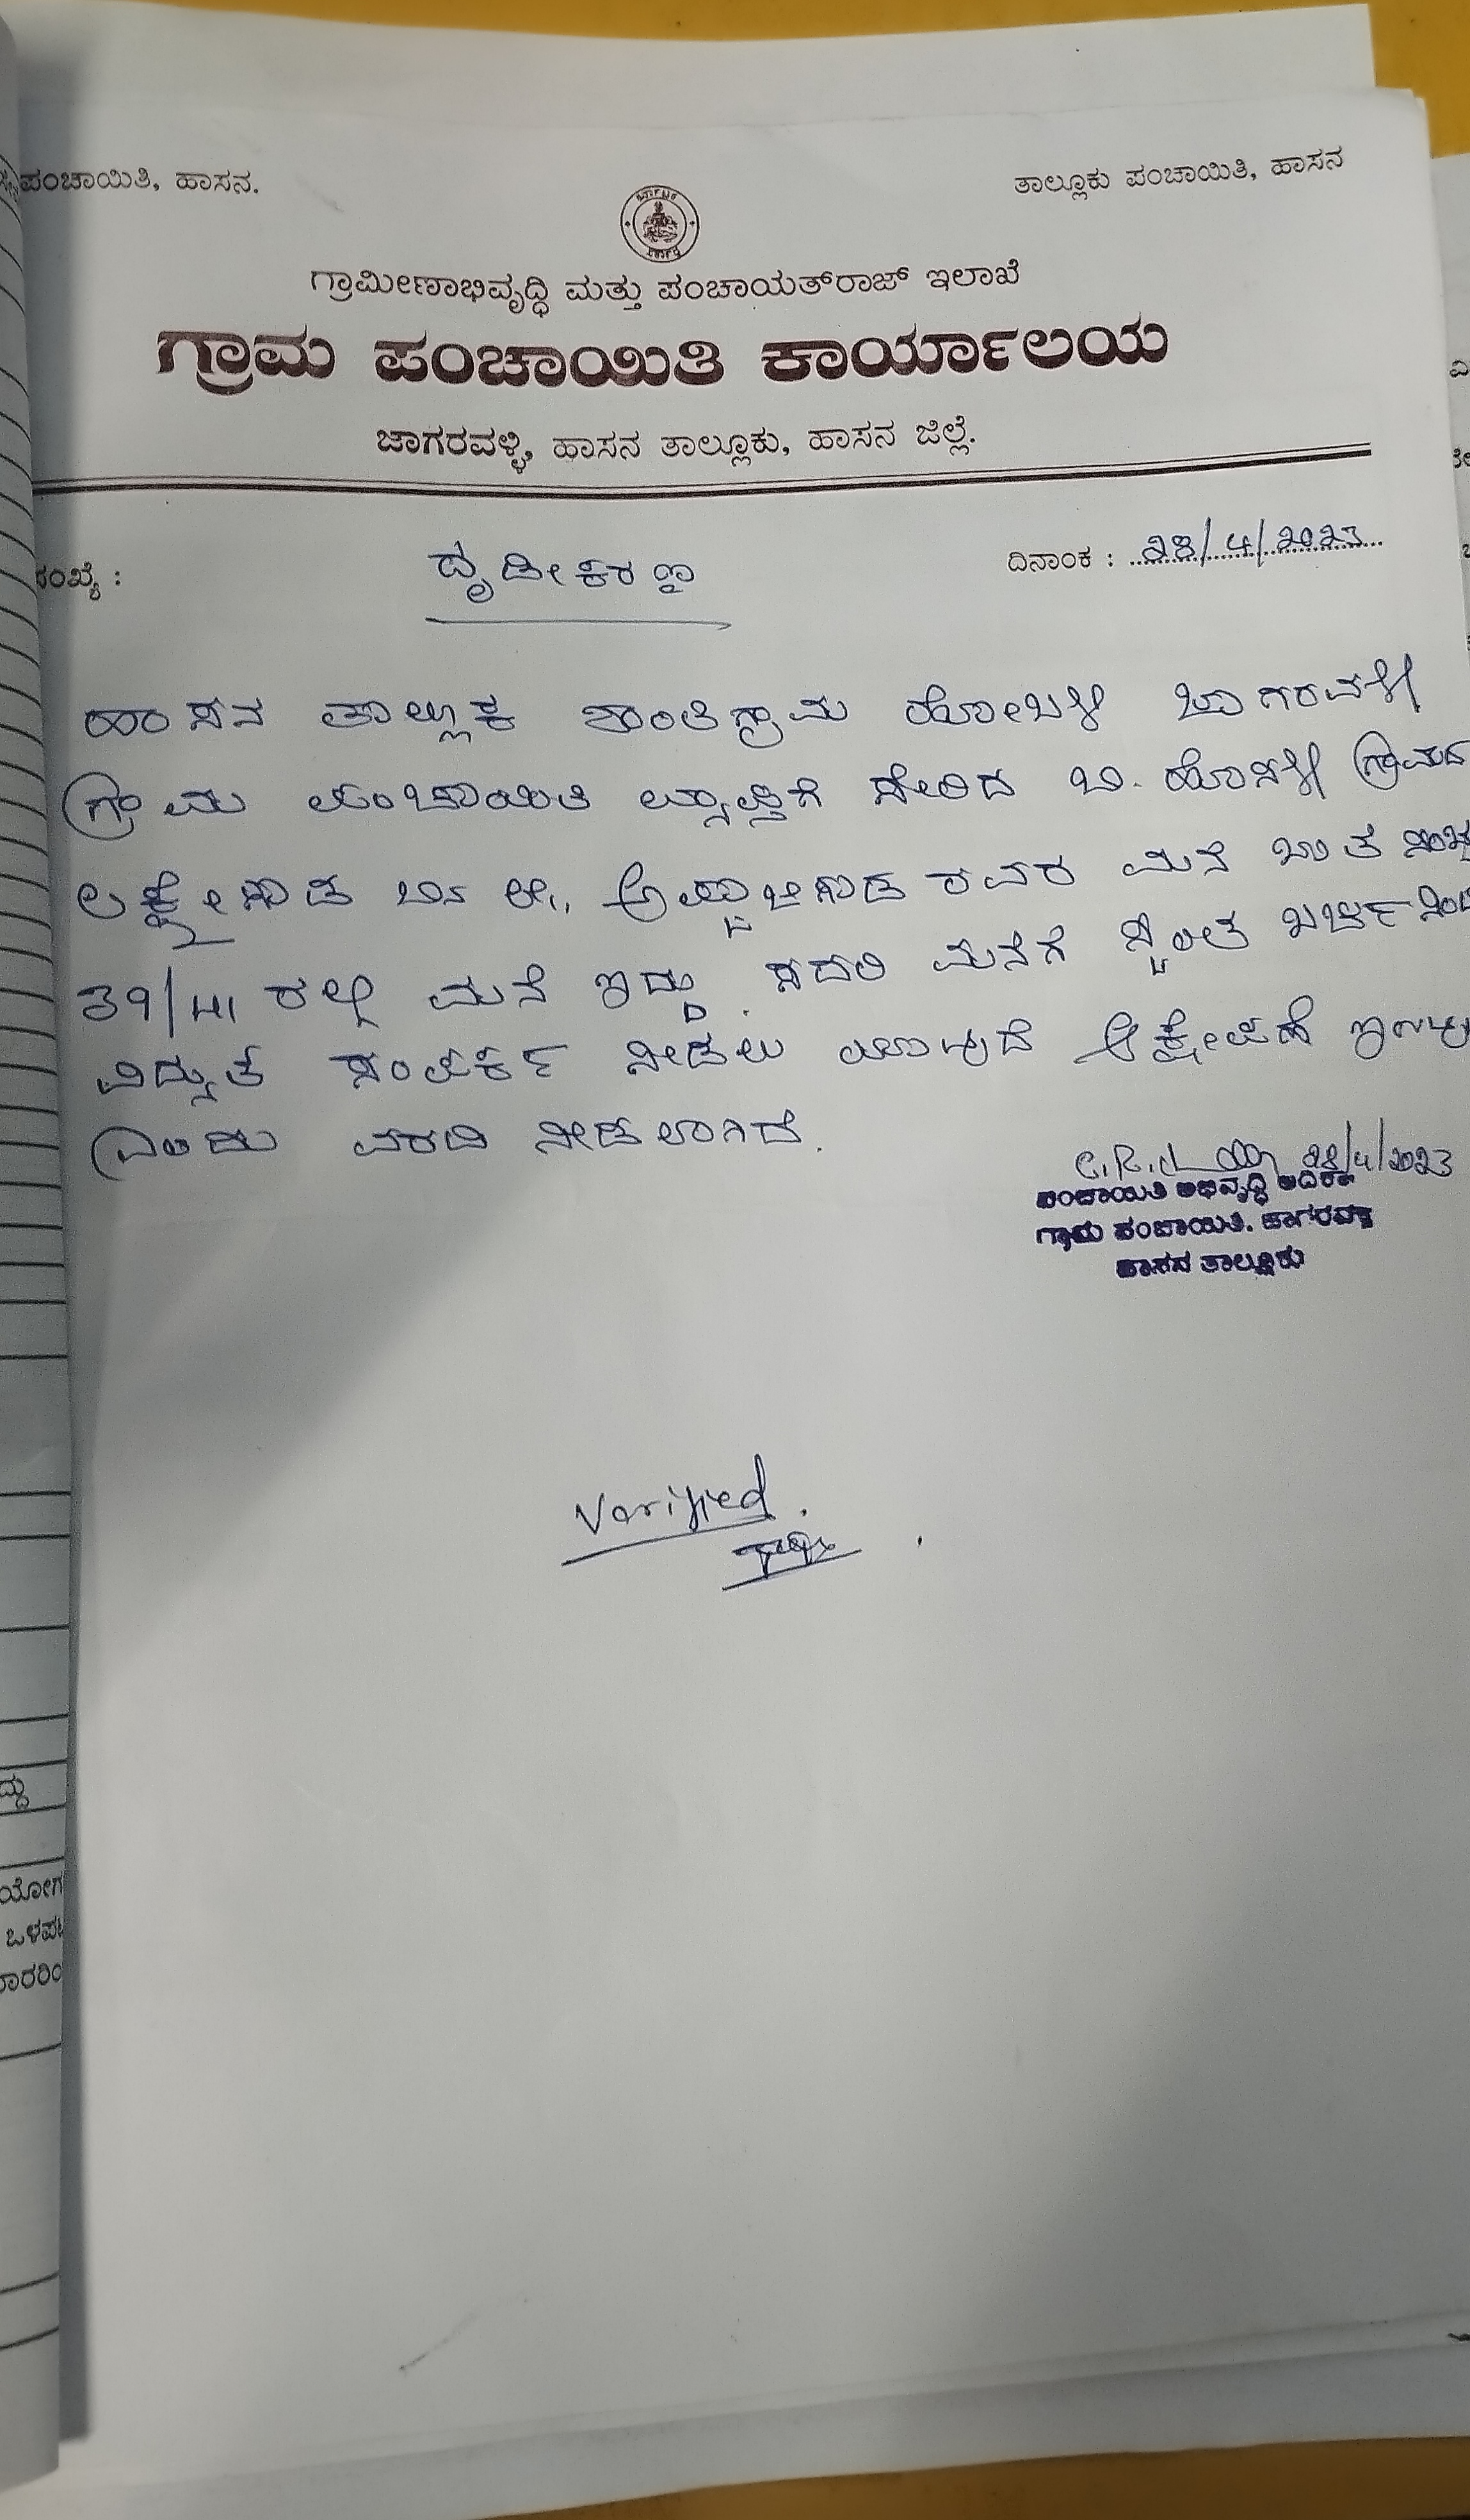 ಪಂಚಾಯಿತಿ, ಹಾಸನ.
ತಾಲ್ಲೂಕು ಪಂಚಾಯಿತಿ, ಹಾಸನ
ಗ್ರಾಮೀಣಾಭಿವೃದ್ಧಿ ಮತ್ತು ಪಂಚಾಯತ್‌ರಾಜ್ ಇಲಾಖೆ
ಗ್ರಾಮ ಪಂಚಾಯಿತಿ ಕಾರ್ಯಾಲಯ
ಜಾಗರವಳ್ಳಿ, ಹಾಸನ ತಾಲ್ಲೂಕು, ಹಾಸನ ಜಿಲ್ಲೆ.
ದಿನಾಂಕ : 28/4/2023
ದೃಡೀಕರಣ
ಹಾಸನ ತಾಲ್ಲೂಕ ಶಾಂತಿಗ್ರಾಮ ಹೋಬಳಿ ಜಾಗರವಳ್ಳಿ
ಗ್ರಾಮ ಪಂಚಾಯಿತಿ ವ್ಯಾಪ್ತಿಗೆ ಸೇರಿದ ಬಿ. ಹೊಸಳ್ಳಿ ಗ್ರಾಮದ
ರವರ ಮನೆ
39/41 ರಲ್ಲಿ ಮನೆ ಇದ್ದು. ಸದರಿ ಮನೆಗೆ ಸ್ವಂತ
ವಿದ್ಯುತ ಸಂಪರ್ಕ ನೀಡಲು ಯಾವುದೆ ಆಕ್ಷೇಪಣೆ
ಎಂದು ವರದಿ ನೀಡಲಾಗಿದೆ.
28/4/2023
ಪಂಚಾಯಿತಿ ಅಭಿವೃದ್ಧಿ
ಗ್ರಾಮ ಪಂಚಾಯಿತಿ. ಜಾಗರವಳ್ಳಿ
ಹಾಸನ ತಾಲ್ಲೂಕು
Verified.